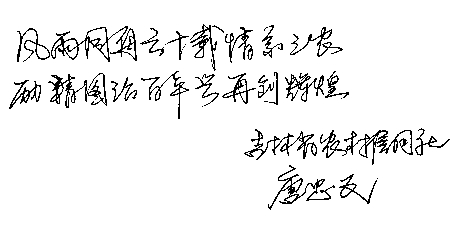 风雨同舟六十载情系三农
励精图治百年兴再创辉煌
吉林省农村报社
唐忠民